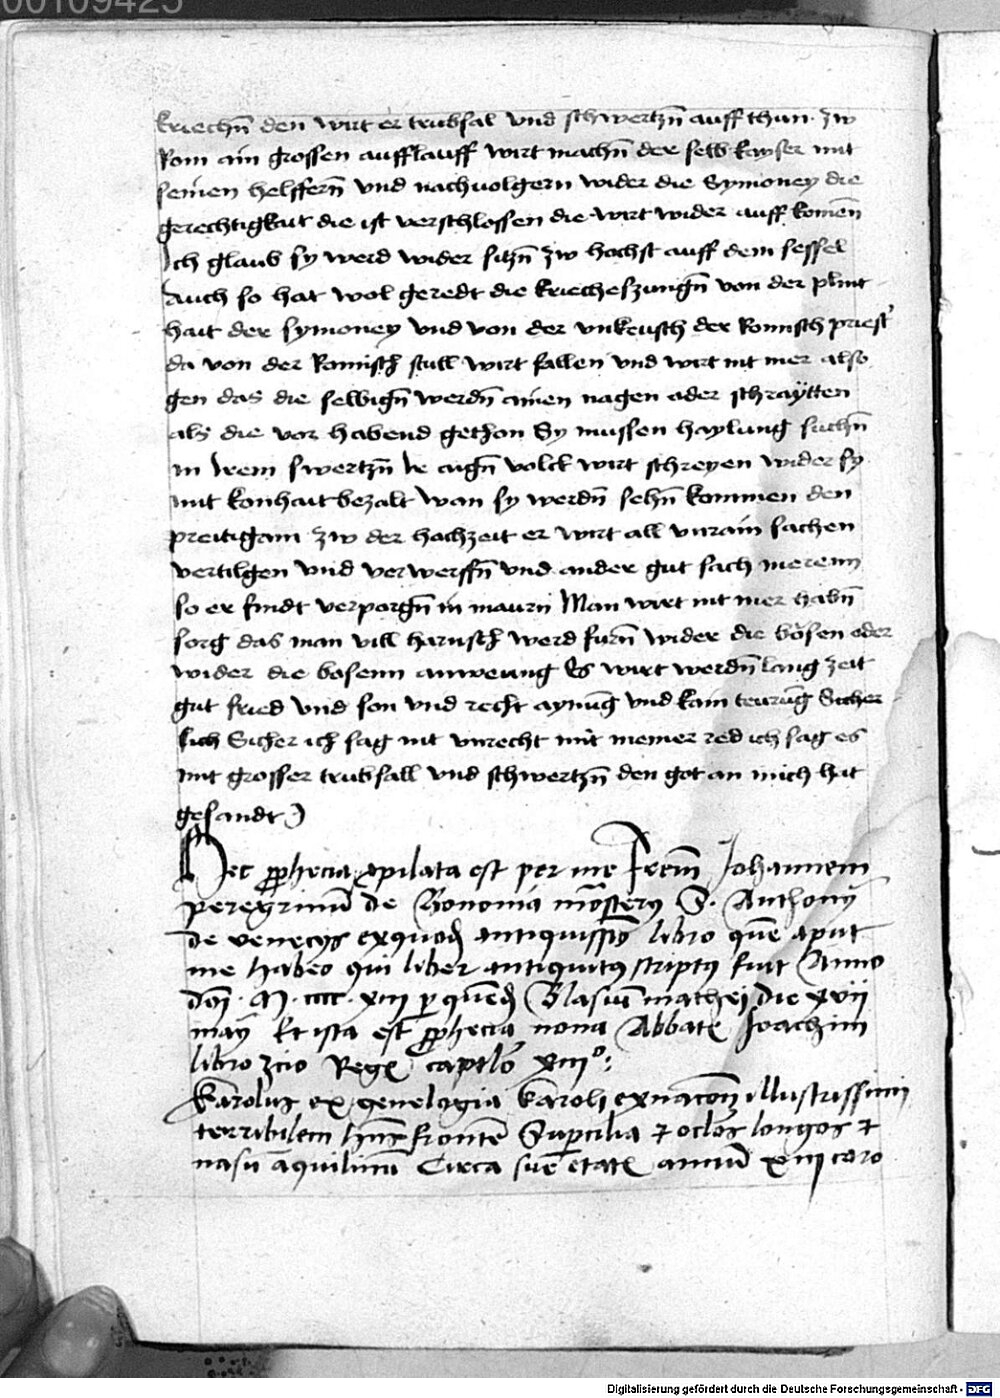 00109425
kriechn̄ den wirt er trubsal vnd schwertzn̄ auff thun · zw
Rom ain grossen aufflauff wirt machn̄ der selb kayser mit
seinen helffern̄ vnd nachuolgern wider die Symoney die
gerechtigkait die ist verschlossen die wirt wider auff komen̄
Ich glaub sy werd wider sitzn̄ zw hochst auff dem sessel
Auch so hat wol geredt die kriecheszungn̄ von der plint
hait der symoney vnd von der vnkeusch der Romisch priest'
da von der Romisch stull wirt fallen vnd wirt nit mer also
gen das die selbign̄ werdn̄ ainen nagen ader schraÿtten
als die vor habend gethon Sy mussen haylung suchn̄
in Irem swertzn̄ Ir aign̄ volck wirt schreyen wider sy
mit konhait bezalt wan sy werdn̄ sehn̄ kommen den
preitigam zw der hochzeit er wirt all vnrain sachen
vertilgen vnd verwerffn̄ vnd ander gut sach meren
so er findt verporgn̄ in maurn Man wirt nit mer habn̄
sorg das man vill harnisch werd furn̄ wider die bosen oder
wider die bosenn anweung Es wirt werdn̄ lang zeit
gut fried vnd son vnd recht aynūg vnd kain teurūg Sicher
lich Sicher ich sag nit vnrecht mit meiner red ich sag es
mit grosser trubsall vnd schwertzn̄ den got an mich hat
gesandt
Hec ꝓphecia ꝯpilata est per me Frem̄ Johannem
peregrinū de Bononia mōsterӱ S. Anthonÿ
de venecÿs exquodā antiquissīo libro quē aput
me habeo qui liber antiquitꝰ scriptꝰ fuit Anno
dn̄i · M · cccc · xiii ꝑ quendā Blasiū mathei die xvii
maÿ Et ista est ꝓphecia nona Abbatꝭ Joachim
libro 2cio Regꝭ captlō xiiiº:
Karolus ex genelogia Karoli exnacōn illustrissimi
terribilem hn̄s frontē Supcilia ⁊ oclōs longos ⁊
nasū aquilinū Circa suē etatꝭ annū xiii coro
Digitalisierung gefördert durch die Deutsche Forschungsgemeinschaft - DFG